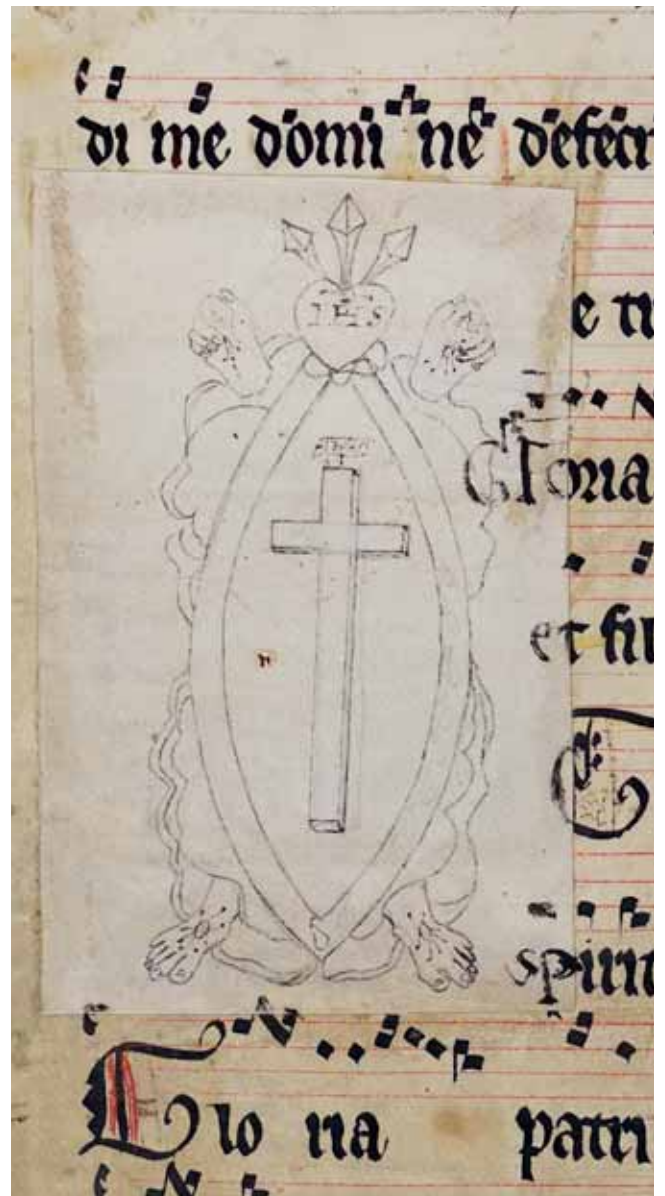 di me domi ne defeci
IHS
Gloria
et fil
spirit
Glo ria patri